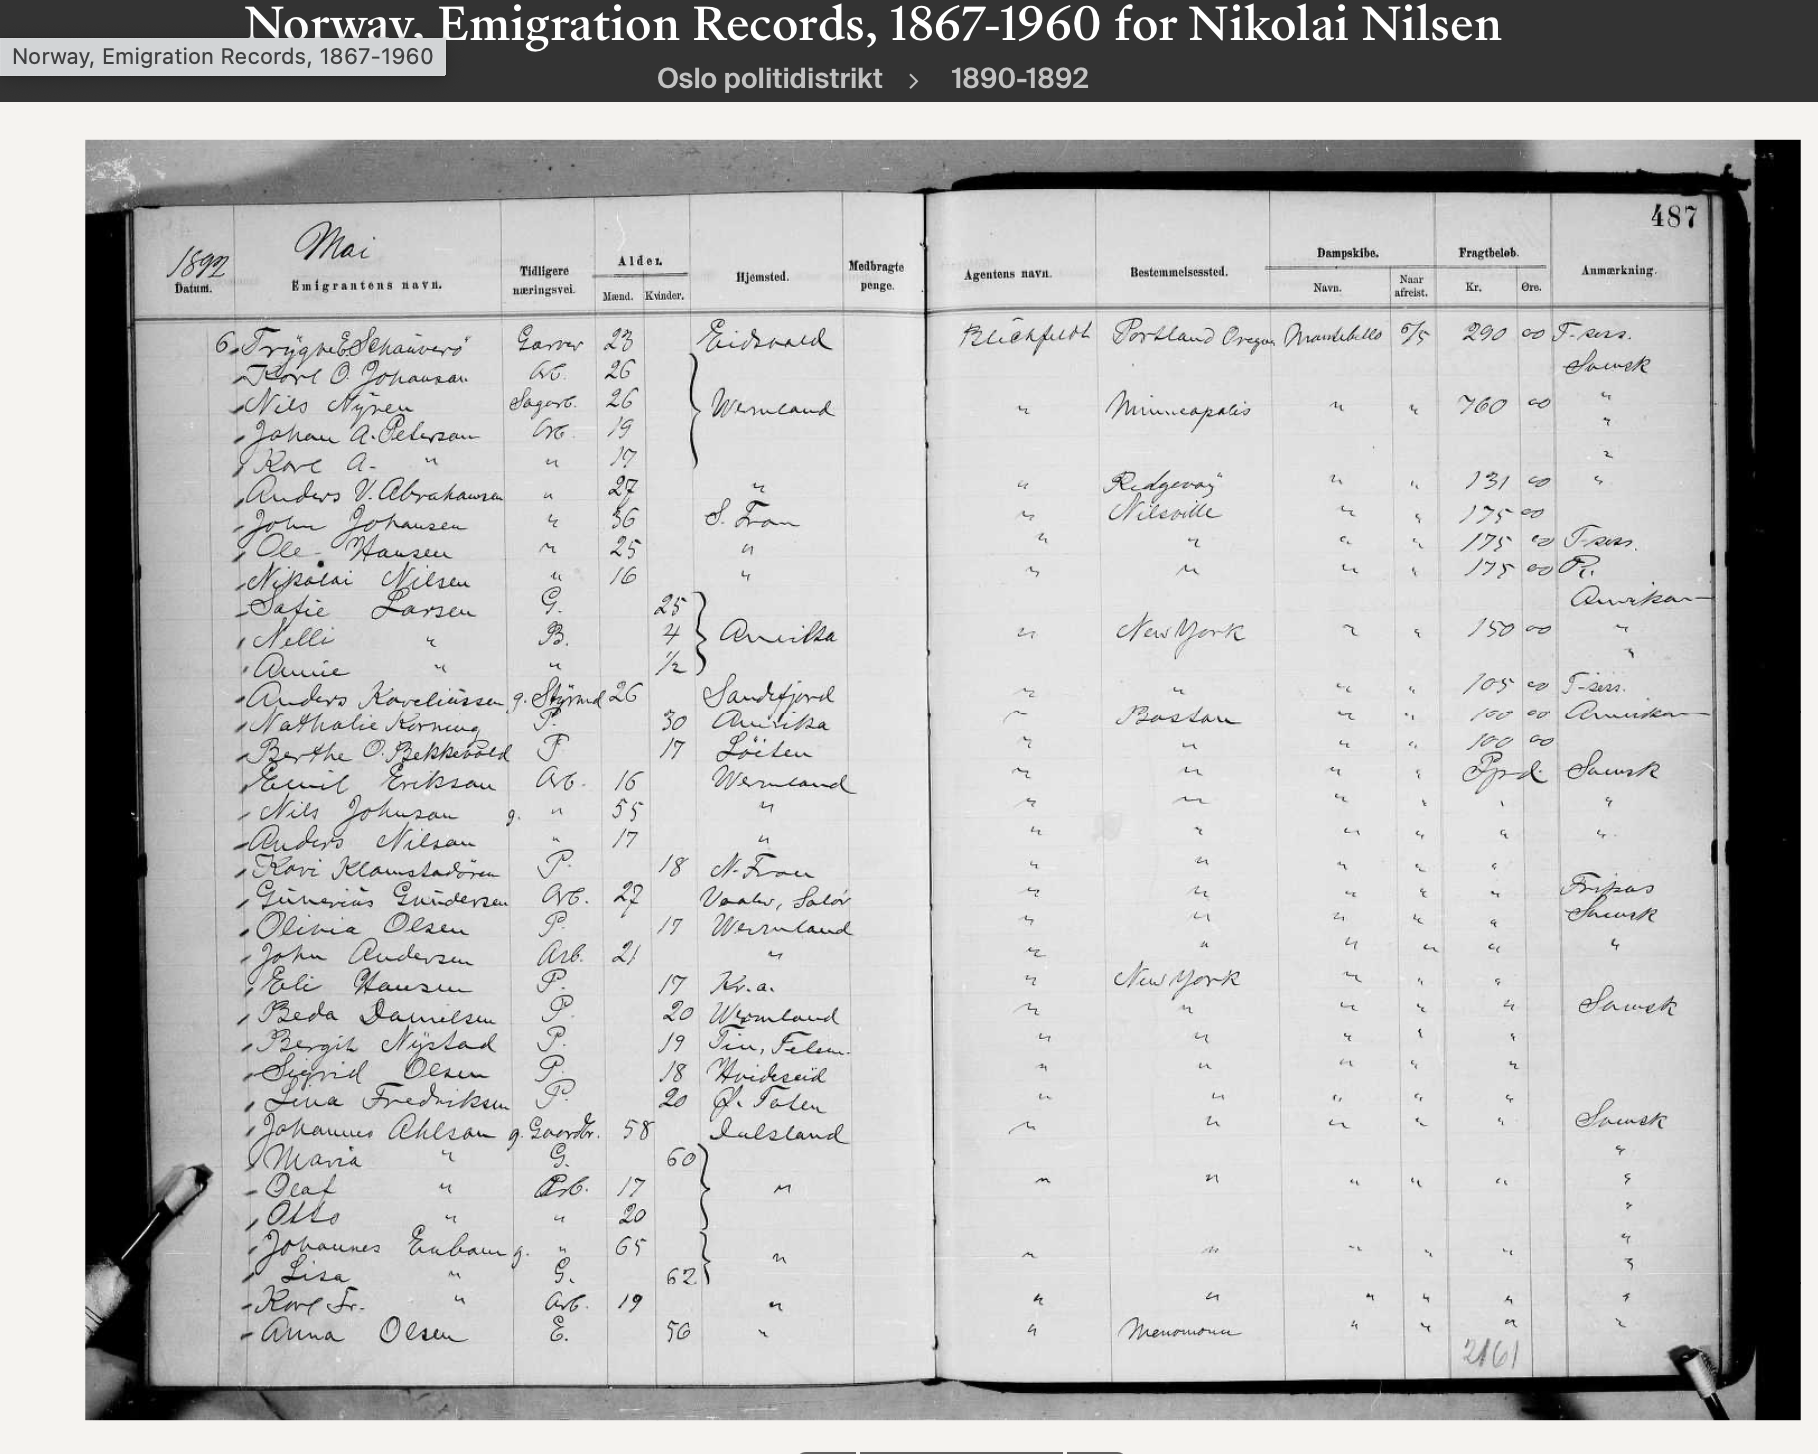 Norway, Emigration Records, 1867-1960 for Nikolai Nilsen
Norway, Emigration Records, 1867-1960
Oslo politidistrikt > 1890-1892
487
1892 Mai
Datum. Emigrantens navn. Tidligere næringsvei. Alder. Mænd. Kvinder. Hjemsted. Medbragte penge. Agentens navn. Bestemmelsessted. Dampskibe. Navn. Naar afreist. Fragtbeløb. Kr. Øre. Anmærkning.
6. Garver 23 Eidsvold Blichfeldt Portland Oregon Montebello 6/5 290 00 T-
" Karl O. Johansen Arb. 26 Svensk
" Nils Nyren Sagarb. 26 Wermland " Minneapolis " " 760 00 "
" Johan A. Peterson Arb. 19 "
" Karl A. " " 17 "
" Anders V. Abrahamsen " 27 " " Ridgeway " " 131 00 "
" John Johansen " 36 S. Fron " Nilsville " " 175 00
" Ole Hansen " 25 " " " " " 175 00 T-
" Nikolai Nilsen " 16 " " " " " 175 00 Pr.
" Sofie Larsen G. 25 Amerikan
" Nelli " B. 4 Amerika " New York " " 150 00 "
" Annie " " 1/2 "
" Anders Korneliussen g. Styrmd 26 Sandefjord " " " " 105 00 T-
" Nathalie Korneug P. 30 Amerika " Boston " " 100 00 Amerikan
" Berthe O. Bekkevold P 17 Löiten " " " " 100 00
" Emil Erikson Arb. 16 Wermland " " " " Pprd. Svensk
" Nils Johnson g. " 55 " " " " " " "
" Anders Nilson " 17 " " " " " " "
" Kari Klomstadören P. 18 N. Fron " " " " "
" Gunerius Gundersen Arb. 27 Vaaler, Solör " " " " " Fripas
" Olivia Olsen P. 17 Wermland " " " " " Svensk
" John Andersen Arb. 21 " " " " " " "
" Eli Hansen P. 17 Kr.a. " New York " " "
" Beda Danielsen P. 20 Wermland " " " " " Svensk
" Bergit Nystad P. 19 Tin, Telem. " " " " "
" Sigrid Olsen P. 18 Hvideseid " " " " "
" Lina Fredriksen P. 20 Ø. Toten " " " " "
" Johannes Ahlson g. Gaardbr. 58 Dalsland " " " " " Svensk
" Maria " G. 60 "
" Olaf " Arb. 17 " " " " " " "
" Otto " " 20 "
" Johannes g. " 65 " " " " " " "
" Lisa " G. 62 "
" Karl Fr. " Arb. 19 " " " " " " "
" Anna Olsen E. 56 " " Menomonie " " " "
2161